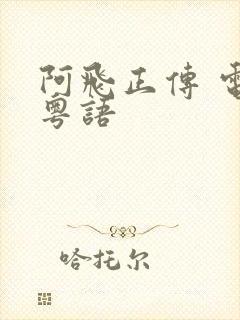 阿飛正傳 電
粵語
哈托尔